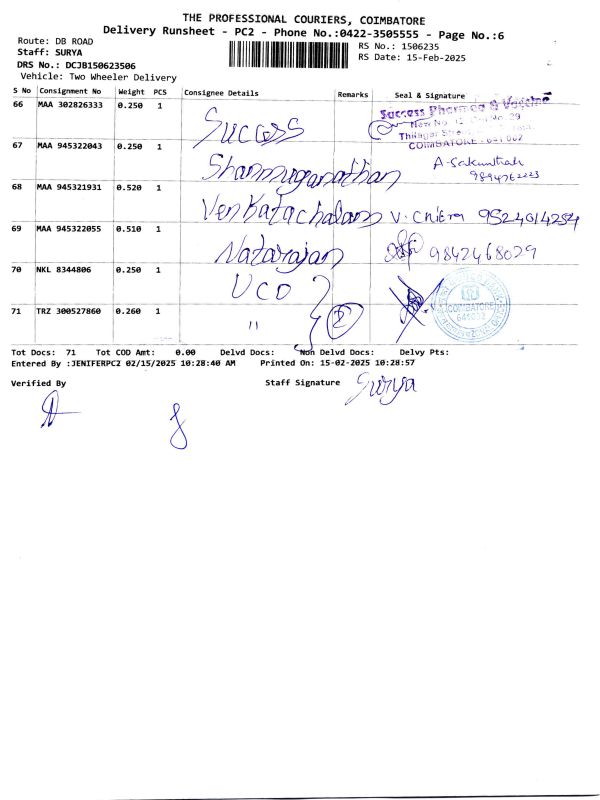 THE PROFESSIONAL COURIERS, COIMBATORE
Delivery Runsheet - PC2 - Phone No.:0422-3505555 - Page No.:6
Route: DB ROAD
RS No.: 1506235
Staff: SURYA
RS Date: 15-Feb-2025
DRS No.: DCJB150623506
Vehicle: Two Wheeler Delivery
S No Consignment No Weight PCS Consignee Details Remarks Seal & Signature
66 MAA 302826333 0.250 1 Success Success Pharma & Vaccine
New No. 29
Thilagar Street
COIMBATORE
67 MAA 945322043 0.250 1 Shanmuganathan
68 MAA 945321931 0.520 1 Venkatachalam V. Chitra 9524014254
69 MAA 945322055 0.510 1 Natarajan 9842468029
70 NKL 8344806 0.250 1 UCO COIMBATORE
71 TRZ 300527860 0.260 1 " 2
Tot Docs: 71 Tot COD Amt: 0.00 Delvd Docs: Non Delvd Docs: Delvy Pts:
Entered By :JENIFERPC2 02/15/2025 10:28:40 AM Printed On: 15-02-2025 10:28:57
Verified By Staff Signature Surya